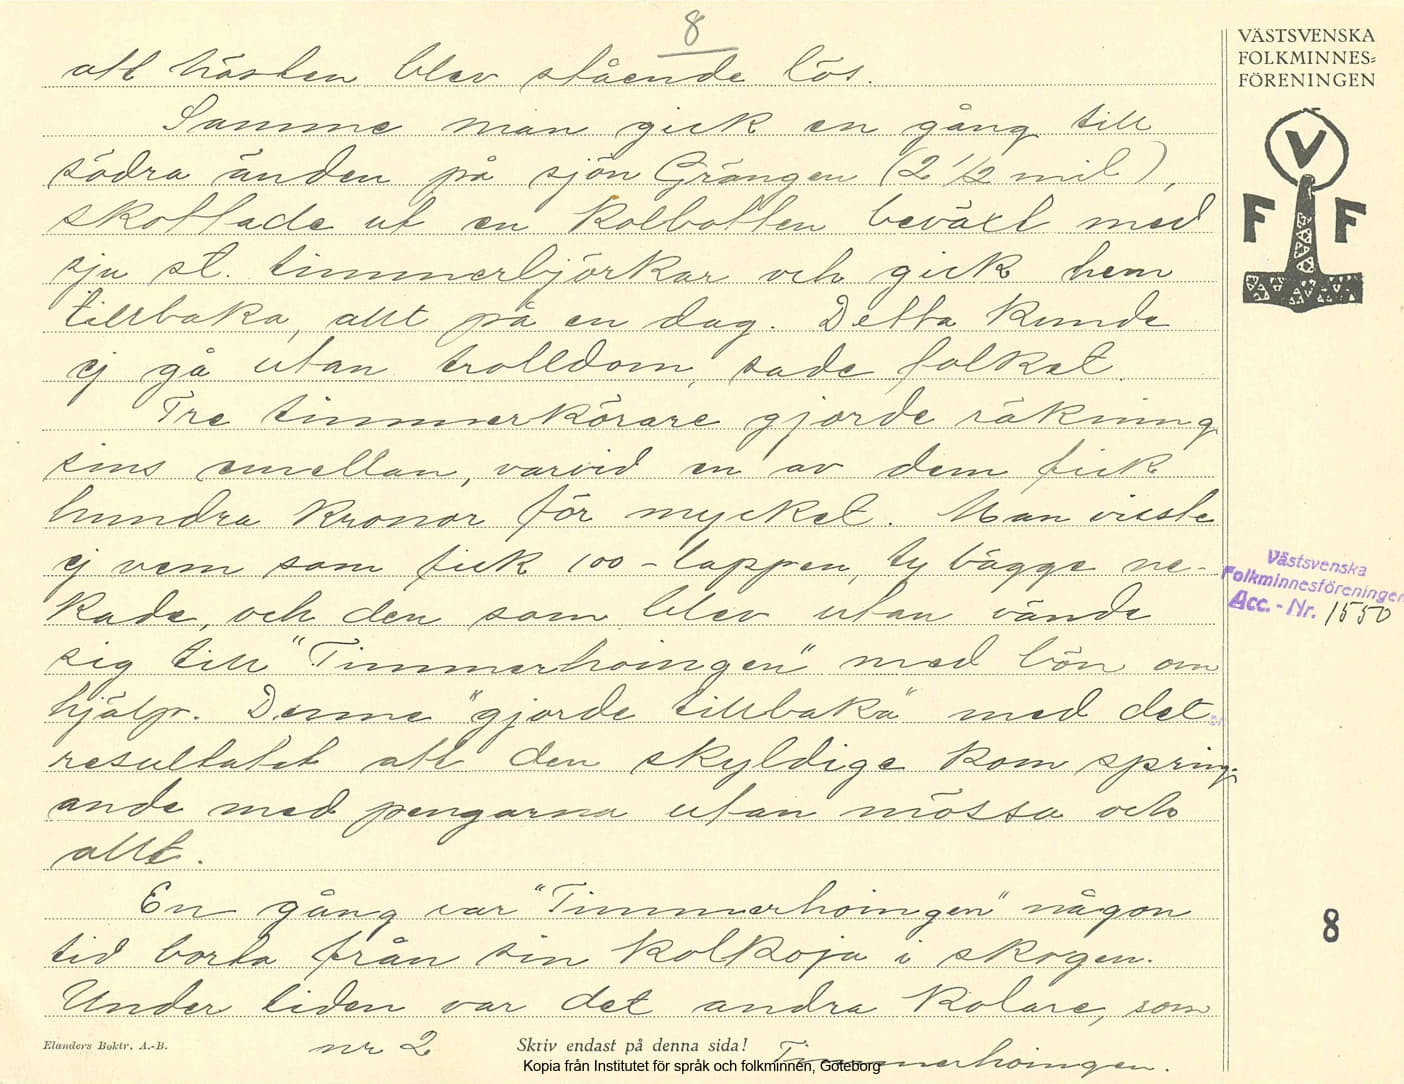 8
att hästen blev stående lös.
Samme man gick en gång till
södra änden på sjön Grängen (2 1/2 mil),
skottade ut en kolbotten beväxt med
sju st. timmerbjörkar och gick hem
tillbaka, allt på en dag. Detta kunde
ej gå utan trolldom, sade folket.
Tre timmerkörare gjorde räkning
sins emellan, varvid en av dem fick
hundra kronor för mycket. Man visste
ej vem som fick 100-lappen, ty bägge ne-
kade, och den som blev utan vände
sig till "Timmerhoingen" med bön om
hjälp. Denne "gjorde tillbaka" med det
resultatet att den skyldige kom spring-
ande med pengarna utan mössa och
allt.
En gång var "Timmerhoingen" någon
tid borta från sin kolkoja i skogen.
Under tiden var det andra kolare, som
nr 2
Timmerhoingen.
Elanders Boktr. A.-B.
Skriv endast på denna sida!
Kopia från Institutet för språk och folkminnen, Göteborg
VÄSTSVENSKA
FOLKMINNES=
FÖRENINGEN
V
F F
Västsvenska
Folkminnesföreningen
Acc.-Nr. 1550
8